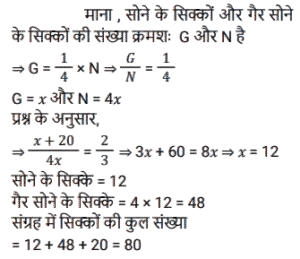 माना , सोने के सिक्कों और गैर सोने
के सिक्कों की संख्या क्रमशः G और N है
⇒ G = 1/4 × N ⇒ G/N = 1/4
G = x और N = 4x
प्रश्न के अनुसार,
⇒ (x + 20)/4x = 2/3 ⇒ 3x + 60 = 8x ⇒ x = 12
सोने के सिक्के = 12
गैर सोने के सिक्के = 4 × 12 = 48
संग्रह में सिक्कों की कुल संख्या
= 12 + 48 + 20 = 80